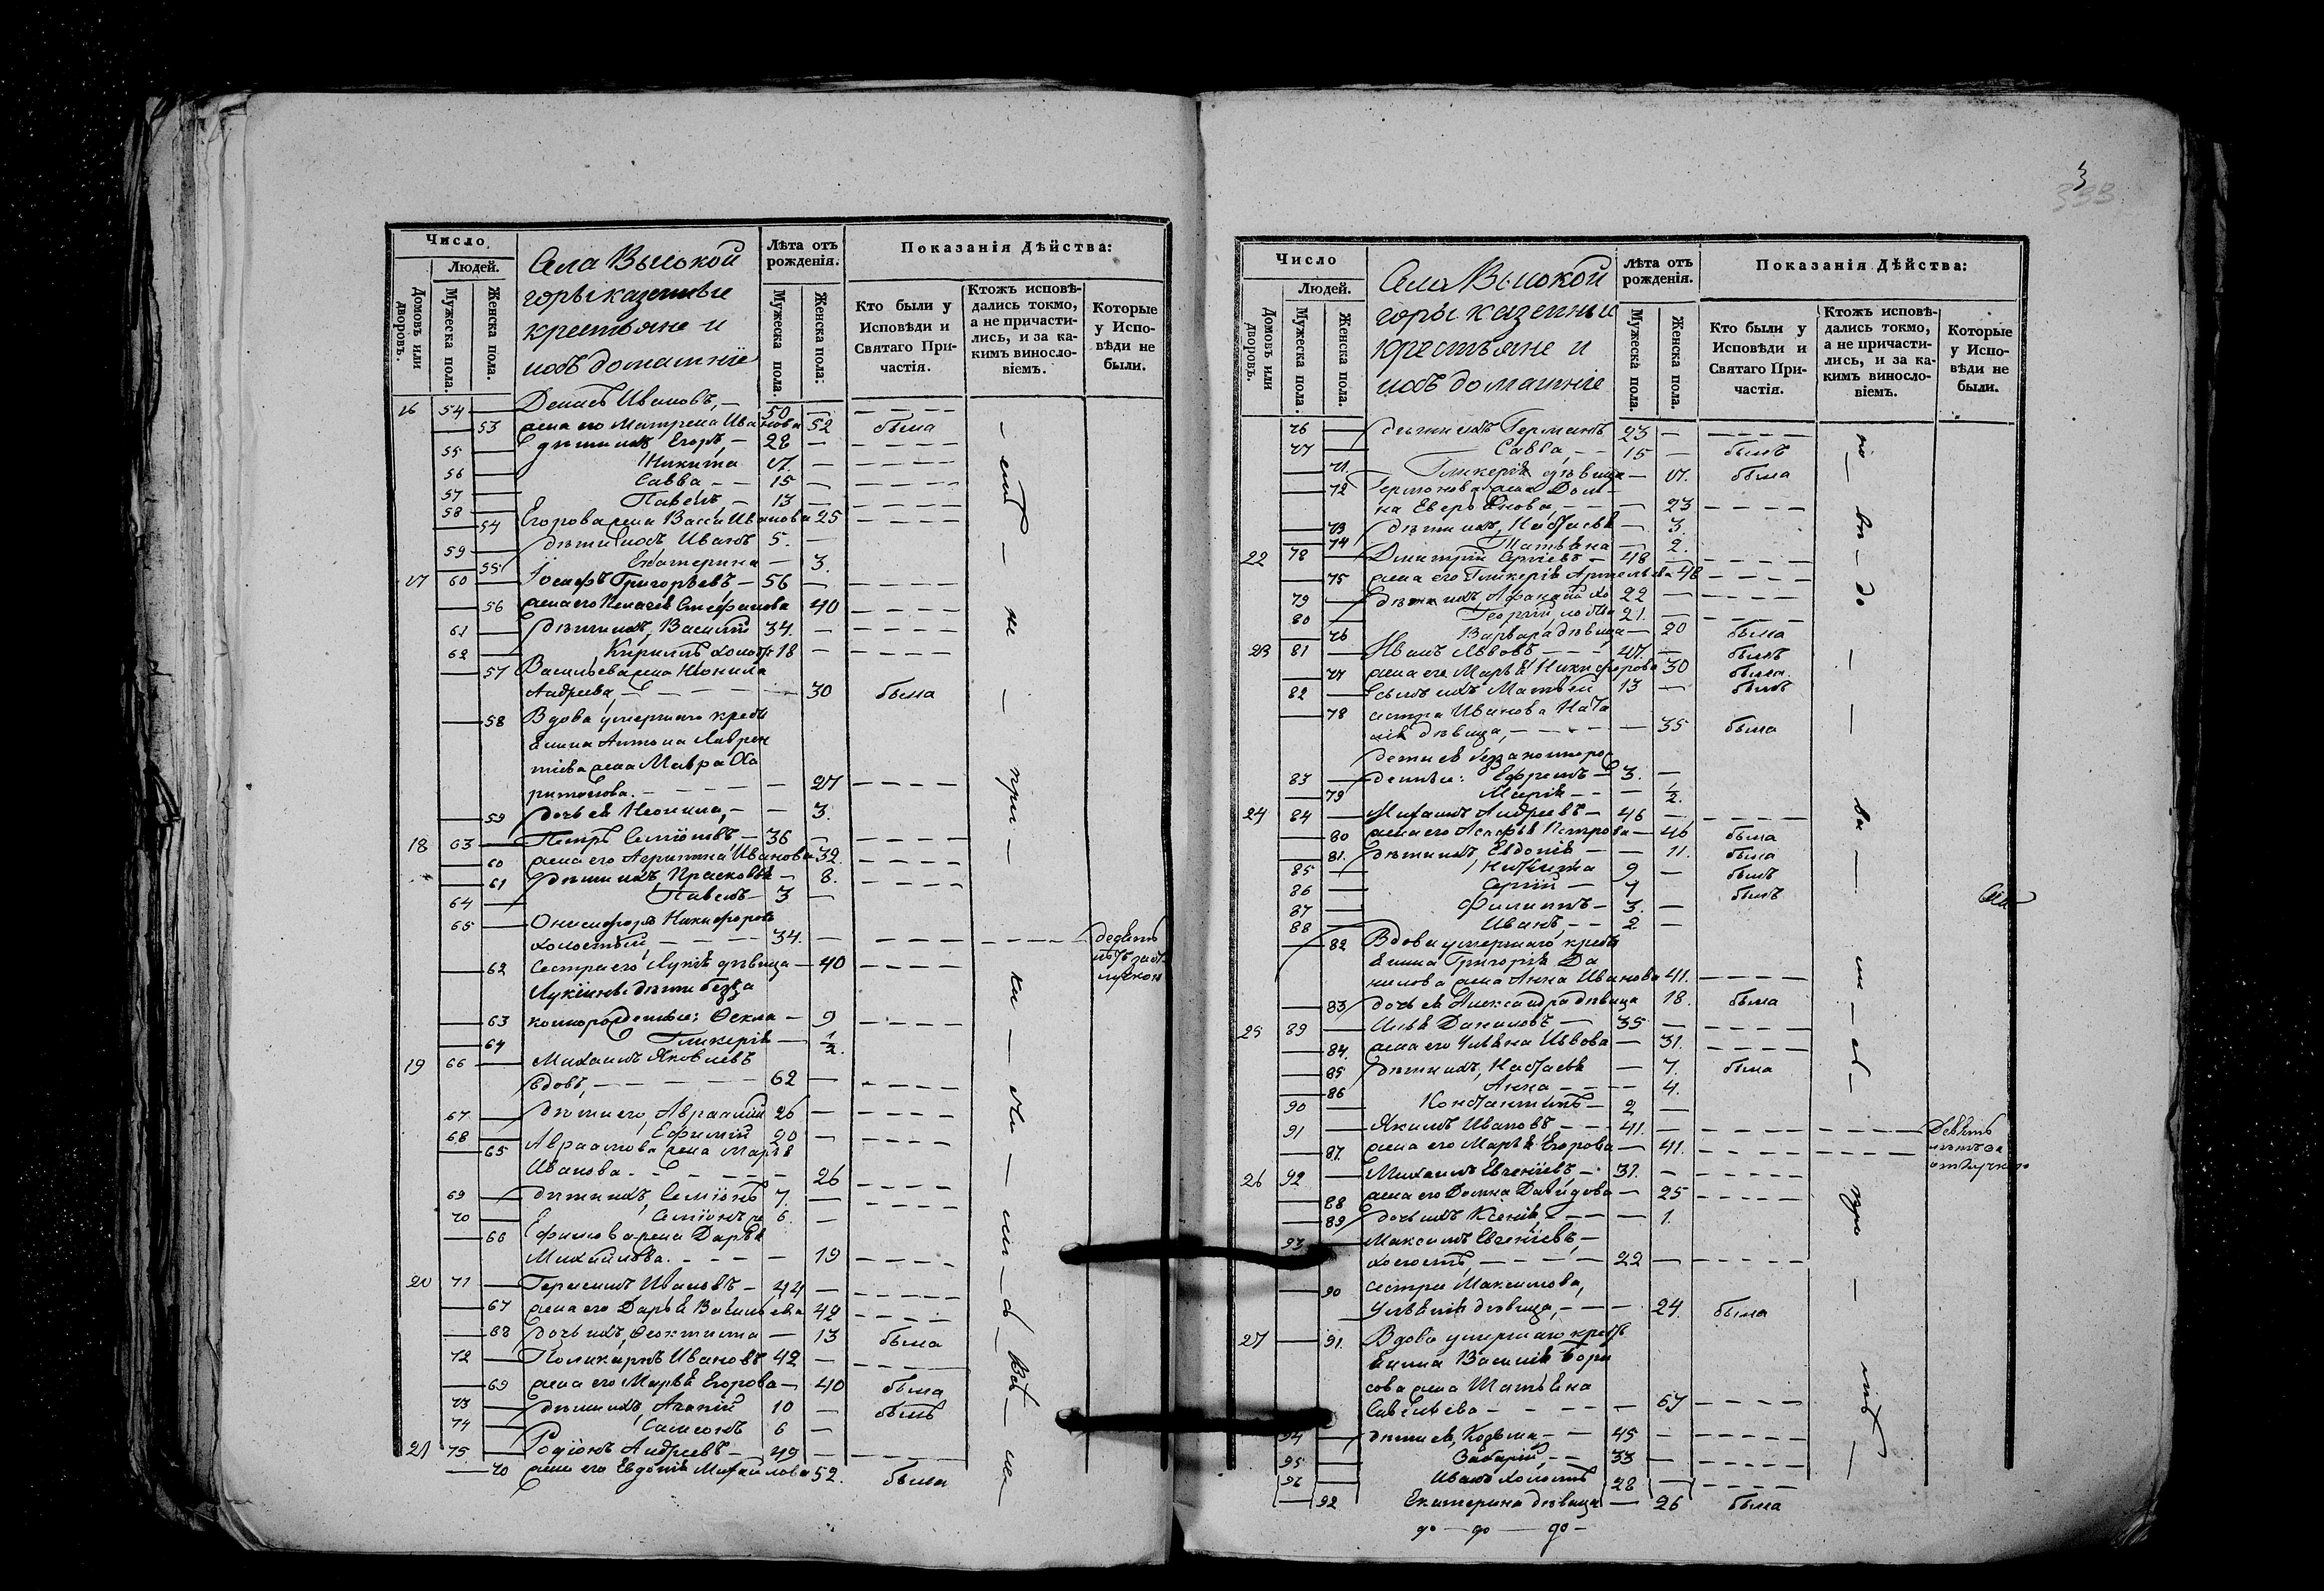 Число
Людей.
Домовъ или дворовъ.
Мужеска пола.
Женска пола.
Села Высокой
горы казенные
крестьяне и
ихъ домашніе
Лѣта отъ рожденія.
Мужеска пола.
Женска пола.
Показанія Дѣйства:
Кто были у Исповѣди и Святаго Причастія.
Ктожъ исповѣдались токмо, а не причастились, и за какимъ винословіемъ.
Которые у Исповѣди не были.
16 54 Денисъ Ивановъ, 50
53 жена его Матрена Иванова 52 была
55 дѣти ихъ Егоръ, 28
56 Никита 17.
57 Савва 15
58 Павелъ 13
54 Егорова жена Васса Иванова 25
59 дѣти ихъ Иванъ 5.
55 Екатерина 3.
17 60 Іосифъ Григорьевъ, 56
56 жена его Стефанова 40
61 дѣти ихъ, Василій 34.
62 Кириллъ холостъ 18
57 Васильева жена Неонила
Андреева, 30 была
58 Вдова умершаго кресть
янина Антона Лаврен
тіева жена Мавра Ха
ритонова. 27
59 дочь ея Неонила, 3.
18 63 Петръ Семіоновъ 36
60 жена его Агрипина Иванова 32.
61 дѣти ихъ, Прасковья 8.
64 Павелъ 3
65 Онисифоръ Никифоровъ
холостый, 34. девять
62 Сестра его Лукія дѣвица 40
Лукіины дѣти безза
63 конорожденные: Фекла 9
64 Гликерія ½.
19 66 Михаилъ Яковлевъ
вдовъ, 62
67 дѣти его, Авраамій 26
68 Ефимій 20
65 Авраамова жена Марья
Иванова. 26
69 дѣти ихъ, Семіонъ 7.
70 Семіонъ 6.
66 Ефимова жена Дарья
Михайлова. 19
20 71 Герасимъ Ивановъ 44
67 жена его Дарья Васильева 42
68 дочь ихъ, Феоктиста 13 была
72 Поликарпъ Ивановъ 42
69 жена его Марья Егорова 40 была
73 дѣти ихъ, Агапій 10 былъ
74 Самсонъ 6
21 75 Родіонъ Андреевъ 49
70 жена его Евдокія Михайлова 52. была
3
333
Число
Людей.
Домовъ или дворовъ.
Мужеска пола.
Женска пола.
Села Высокой
горы казенныи
крестьяне и
ихъ домашніе
Лѣта отъ рожденія.
Мужеска пола.
Женска пола.
Показанія Дѣйства:
Кто были у Исповѣди и Святаго Причастія.
Ктожъ исповѣдались токмо, а не причастились, и за какимъ винословіемъ.
Которые у Исповѣди не были.
76 дѣти ихъ Германъ 23
77 Савва, 15 былъ
71. Гликерія дѣвица 17. была
72 Германова жена Дом
на 23
73 дѣти ихъ, Настасья 3.
74 Татьяна 2.
22 78 Дмитрій Сергіевъ 48
75 жена его Гликерія 48
79 дѣти ихъ, Афанасій хо 22
80 Георгій, холостъ 21.
76 Варвара дѣвица 20 была
23 81 Иванъ Львовъ 47. былъ
77 жена его Марья Никифорова 30 была
82 сынъ ихъ Матвей 13 былъ
78 сестра Иванова Ната
лія дѣвица, 35 была
дети ея беззаконнорож
83 денныя: Ефремъ 3.
79 Марія ½.
24 84 Михаилъ Андреевъ 46
80 жена его Агафья Петрова 46 была
81. дѣти ихъ Евдокія 11. была
85 Никита 9 былъ
86 Сергій 7 былъ
87 Филиппъ 3.
88 Иванъ, 2
82 Вдова умершаго кресть
янина Григорія Да
нилова жена Анна Иванова 41.
83 дочь ея Александра дѣвица 18. была
25 89 Илья Даниловъ 35
84. жена его Ульяна Львова 31.
85 дѣти ихъ, Настасья 7. была
86 Анна 4.
90 Константинъ 2
91 Якимъ Ивановъ 41. Девять
87. жена его Марья Егорова 41.
26 92 Михаилъ Евгеніевъ, 31.
88 жена его Домна Давидова 25
89 дочь ихъ Ксенія, 1.
93 Максимъ Евгеніевъ,
холостъ, 22
90 сестра Максимова,
дѣвица, 24. была
27 91. Вдова умершаго кресть
янина Василія Бори
сова жена Татьяна
Савельева 67
94 дѣти ея, Козьма 45
95 Захарій, 33
96 Иванъ холостъ 28
92 Екатерина дѣвица 26 была